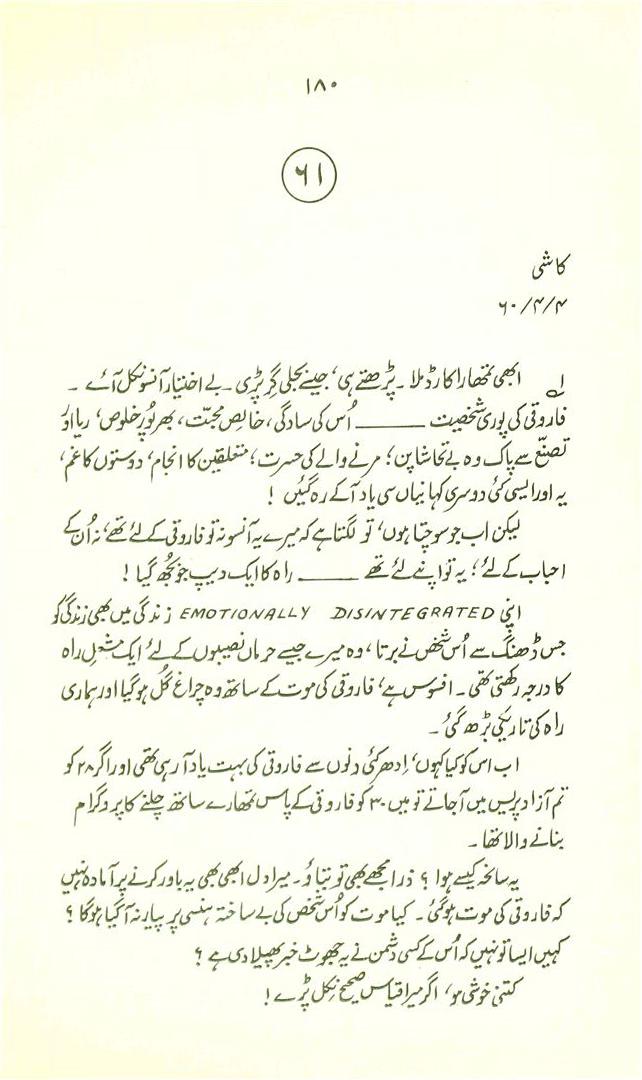 ۱۸۰
۶۱
کاشی
۶۰/۴/۴
لے ابھی تمھارا کارڈ ملا ۔ پڑھتے ہی، جیسے بجلی گِر پڑی ۔ بے اختیار آنسو نکل آئے ۔
فاروقی کی پوری شخصیت ـــــــ اُس کی سادگی، خالِص محبّت، بھرپُور خلوص، ریا اور
تصنّع سے پاک وہ بے تحاشا پن؛ مرنے والے کی حسرت؛ متعلقین کا انجام، دوستوں کا غم،
یہ اور ایسی کئی دوسری کہانیاں سی یاد آ کے رہ گئیں !
لیکن اب جو سوچتا ہوں، تو لگتا ہے کہ میرے یہ آنسو نہ تو فاروقی کے لئے تھے، نہ اُن کے
احباب کے لئے؛ یہ تو اپنے لئے تھے ـــــــ راہ کا ایک دیپ جو بُجھ گیا !
اپنی EMOTIONALLY DISINTEGRATED زندگی میں بھی زندگی کو
جس ڈھنگ سے اُس شخص نے برتا، وہ میرے جیسے حرماں نصیبوں کے لئے ایک مشعلِ راہ
کا درجہ رکھتی تھی ۔ افسوس ہے، فاروقی کی موت کے ساتھ وہ چراغ گُل ہو گیا اور ہماری
راہ کی تاریکی بڑھ گئی ۔
اب اس کو کیا کہوں، اِدھر کئی دِنوں سے فاروقی کی بہت یاد آ رہی تھی اور اگر ۲۸ کو
تم آزاد پریس میں آ جاتے تو میں ۳۰ کو فاروقی کے پاس تمھارے ساتھ چلنے کا پروگرام
بنانے والا تھا ۔
یہ سانحہ کیسے ہوا ؟ ذرا مجھے بھی تو بتاؤ ۔ میرا دل ابھی بھی یہ باور کرنے پر آمادہ نہیں
کہ فاروقی کی موت ہو گئی ۔ کیا موت کو اُس شخص کی بے ساختہ ہنسی پر پیار نہ آ گیا ہو گا ؟
کہیں ایسا تو نہیں کہ اُس کے کسی دشمن نے یہ جھوٹ خبر پھیلا دی ہے ؟
کتنی خوشی ہو، اگر میرا قیاس صحیح نِکل پڑے !